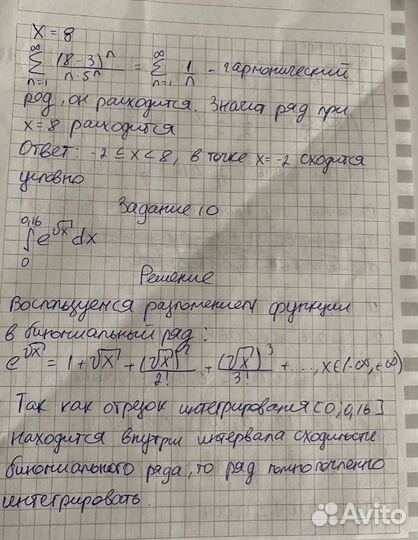 x = 8
∞ ∑ n=1 (8-3)^n / n·5^n = ∞ ∑ n=1 1/n - гармонический
ряд, он расходится. Значит ряд при
x = 8 расходится
Ответ: -2 ≤ x < 8, в точке x = -2 сходится
условно
Задание 10
0,16 ∫ 0 e^√x dx
Решение
Воспользуемся разложением функции
в биномиальный ряд:
e^√x = 1 + √x + (√x)^2 / 2! + (√x)^3 / 3! + ..., x ∈ (-∞, +∞)
Так как отрезок интегрирования [0; 0,16]
находится внутри интервала сходимости
биномиального ряда, то ряд почленно
интегрировать.
Avito